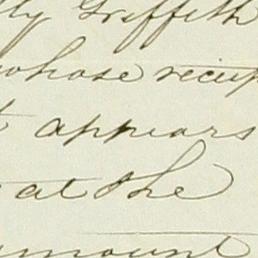 lly Griffith
whose recip
t appears
at the
amount